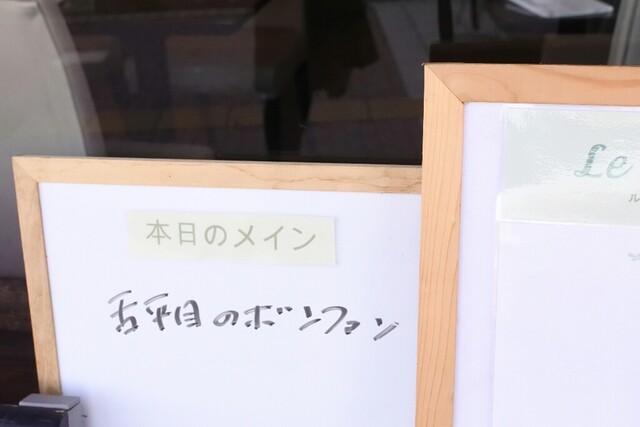 本日のメイン
舌平目のボンファン
Le
ル